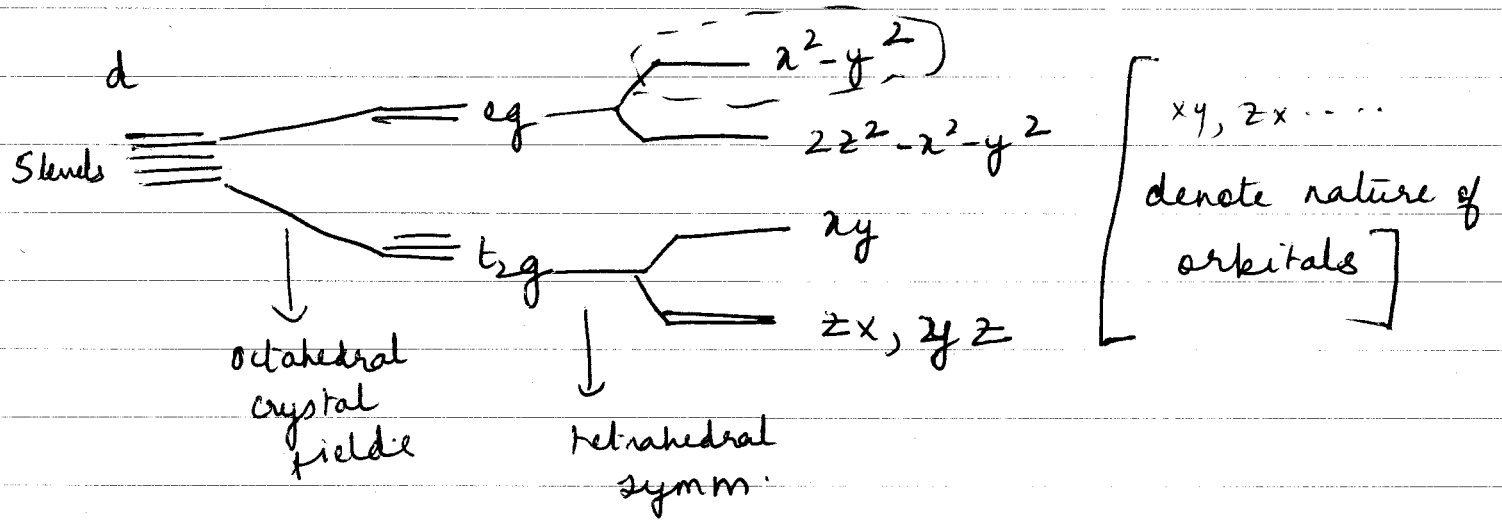 d
5 levels
eg
x²-y²
2z²-x²-y²
t₂g
xy
zx, yz
octahedral
crystal
field
tetrahedral
symm.
[xy, zx.....
denote nature of
orbitals]